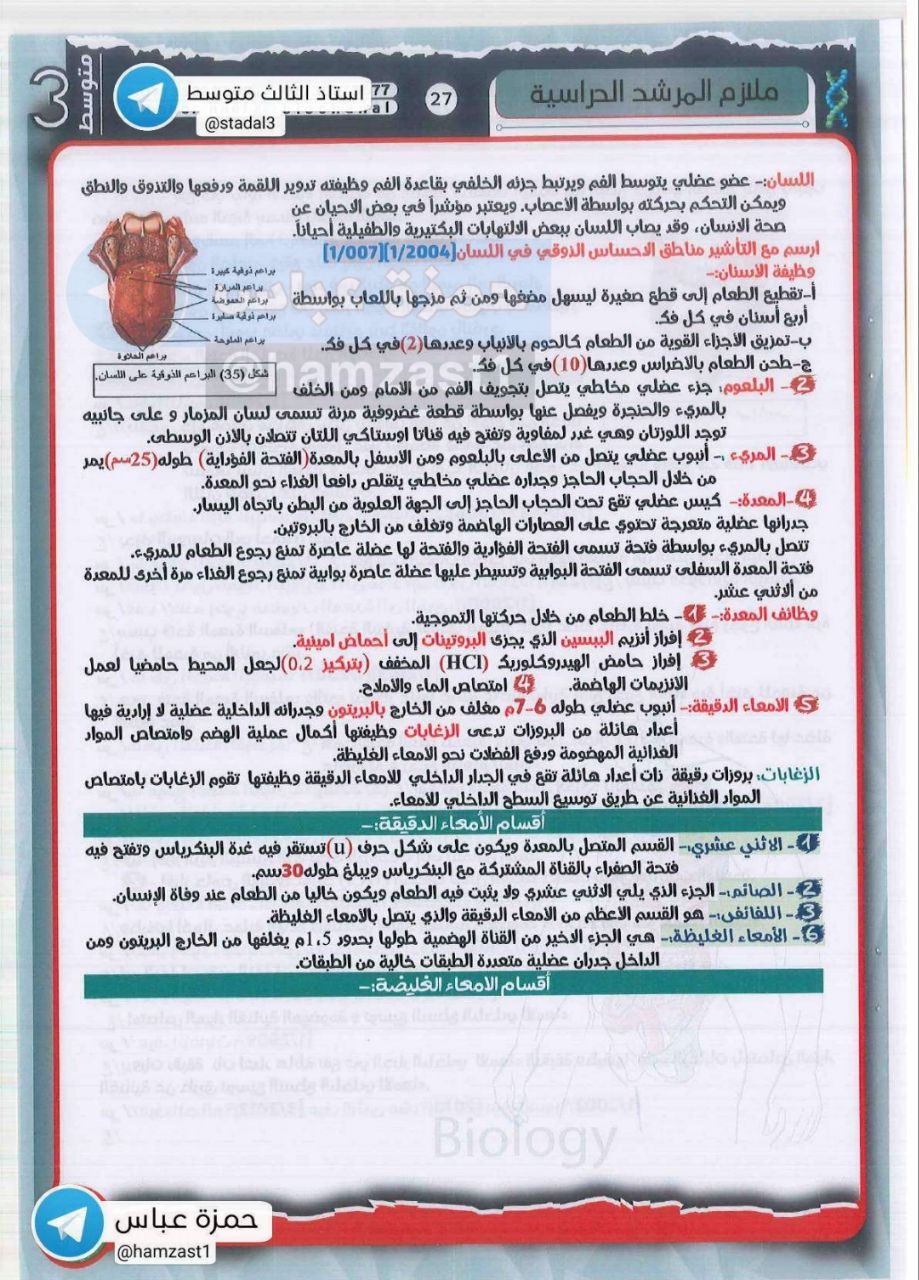 ملازم المرشد الدراسية
27
77
استاذ الثالث متوسط
@stadal3
3 متوسط
اللسان:- عضو عضلي يتوسط الفم ويرتبط جزئه الخلفي بقاعدة الفم وظيفته تدوير اللقمة ودفعها والتذوق والنطق
ويمكن التحكم بحركته بواسطة الاعصاب. ويعتبر مؤشراً في بعض الاحيان عن
صحة الانسان، وقد يصاب اللسان ببعض الالتهابات البكتيرية والطفيلية أحياناً.
ارسم مع التأشير مناطق الاحساس الذوقي في اللسان[1/2004][1/007]
وظيفة الاسنان:-
أ-تقطيع الطعام إلى قطع صغيرة ليسهل مضغها ومن ثم مزجها باللعاب بواسطة
أربع أسنان في كل فك.
ب-تمزيق الأجزاء القوية من الطعام كالحوم بالانياب وعددها(2)في كل فك.
ج-طحن الطعام بالاضراس وعددها(10)في كل فك.
براعم ذوقية كبيرة
براعم المرارة
براعم الحموضة
براعم ذوقية صغيرة
براعم الملوحة
براعم الحلاوة
شكل (35) البراعم الذوقية على اللسان.
حمزة عباس
@hamzast1
2- البلعوم: جزء عضلي مخاطي يتصل بتجويف الفم من الأمام ومن الخلف
بالمريء والحنجرة ويفصل عنها بواسطة قطعة غضروفية مرنة تسمى لسان المزمار و على جانبيه
توجد اللوزتان وهي غدد لمفاوية وتفتح فيه قناتا اوستاكي اللتان تتصلان بالاذن الوسطى.
3- المريء :- أنبوب عضلي يتصل من الاعلى بالبلعوم ومن الاسفل بالمعدة(الفتحة الفؤداية) طوله(25سم)يمر
من خلال الحجاب الحاجز وجداره عضلي مخاطي يتقلص دافعا الغذاء نحو المعدة.
4-المعدة:- كيس عضلي تقع تحت الحجاب الحاجز إلى الجهة العلوية من البطن باتجاه اليسار.
جدرانها عضلية متعرجة تحتوي على العصارات الهاضمة وتغلف من الخارج بالبروتين.
تتصل بالمريء بواسطة فتحة تسمى الفتحة الفؤادية والفتحة لها عضلة عاصرة تمنع رجوع الطعام للمريء.
فتحة المعدة السفلى تسمى الفتحة البوابية وتسيطر عليها عضلة عاصرة بوابية تمنع رجوع الغذاء مرة أخرى للمعدة
من ألاثني عشر.
وظائف المعدة:- 1- خلط الطعام من خلال حركتها التموجية.
2 إفراز أنزيم الببسين الذي يجزئ البروتينات إلى أحماض امينية.
3 إفراز حامض الهيدروكلوريك (HCl) المخفف (بتركيز 0،2)لجعل المحيط حامضيا لعمل
الانزيمات الهاضمة. 4 امتصاص الماء والاملاح.
5 الامعاء الدقيقة:- أنبوب عضلي طوله 6-7م مغلف من الخارج بالبريتون وجدرانه الداخلية عضلية لا إرادية فيها
أعداد هائلة من البروزات تدعى الزغابات وظيفتها أكمال عملية الهضم وامتصاص المواد
الغذائية المهضومة ودفع الفضلات نحو الامعاء الغليظة.
الزغابات: بروزات دقيقة ذات أعداد هائلة تقع في الجدار الداخلي للامعاء الدقيقة وظيفتها تقوم الزغابات بامتصاص
المواد الغذائية عن طريق توسيع السطح الداخلي للامعاء.
أقسام الأمعاء الدقيقة:-
1- الاثني عشري:- القسم المتصل بالمعدة ويكون على شكل حرف (u)تستقر فيه غدة البنكرياس وتفتح فيه
فتحة الصفراء بالقناة المشتركة مع البنكرياس ويبلغ طوله30سم.
2- الصائم:- الجزء الذي يلي الاثني عشري ولا يثبت فيه الطعام ويكون خاليا من الطعام عند وفاة الإنسان.
3- اللفائفي:- هو القسم الاعظم من الامعاء الدقيقة والذي يتصل بالأمعاء الغليظة.
6- الأمعاء الغليظة:- هي الجزء الاخير من القناة الهضمية طولها بحدود 1،5م يغلفها من الخارج البريتون ومن
الداخل جدران عضلية متعددة الطبقات خالية من الطبقات.
أقسام الامعاء الغليضة:-
Biology
حمزة عباس
@hamzast1